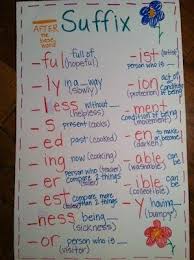 Suffix
AFTER
the
base word
-ful full of (hopeful)
-ly in a way (slowly)
-less without (helpless)
-s present (cooks)
-ed past (cooked)
-ing now (cooking)
-er person who (teacher)
compare 2 things
-est compare more than 2 things
-ness being (sickness)
-or person who is (visitor)
-ist (artist)
person who is
-ion act of
(protection) condition of being
-ment
condition of being
(movement)
-en to make
(darken)
-able can be
(washable)
-ible can be
(collectible)
-y having
(bumpy)